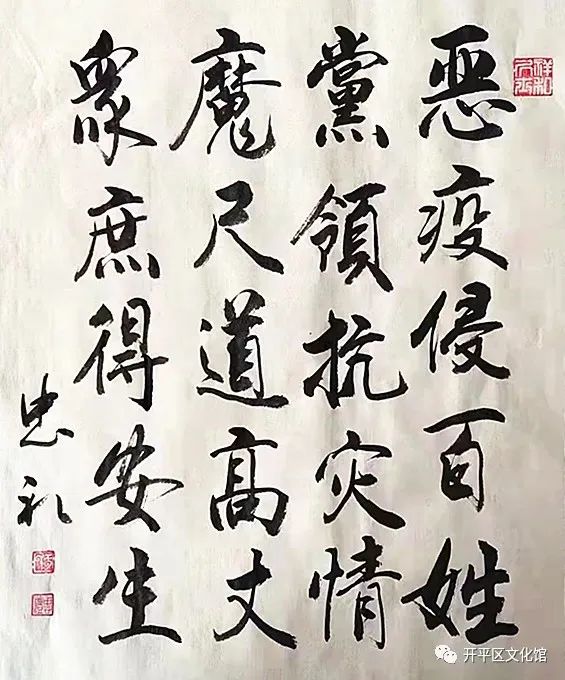 惡疫侵百姓
黨領抗灾情
魔尺道高丈
衆庶得安生
忠礼
祥和
开平区文化馆